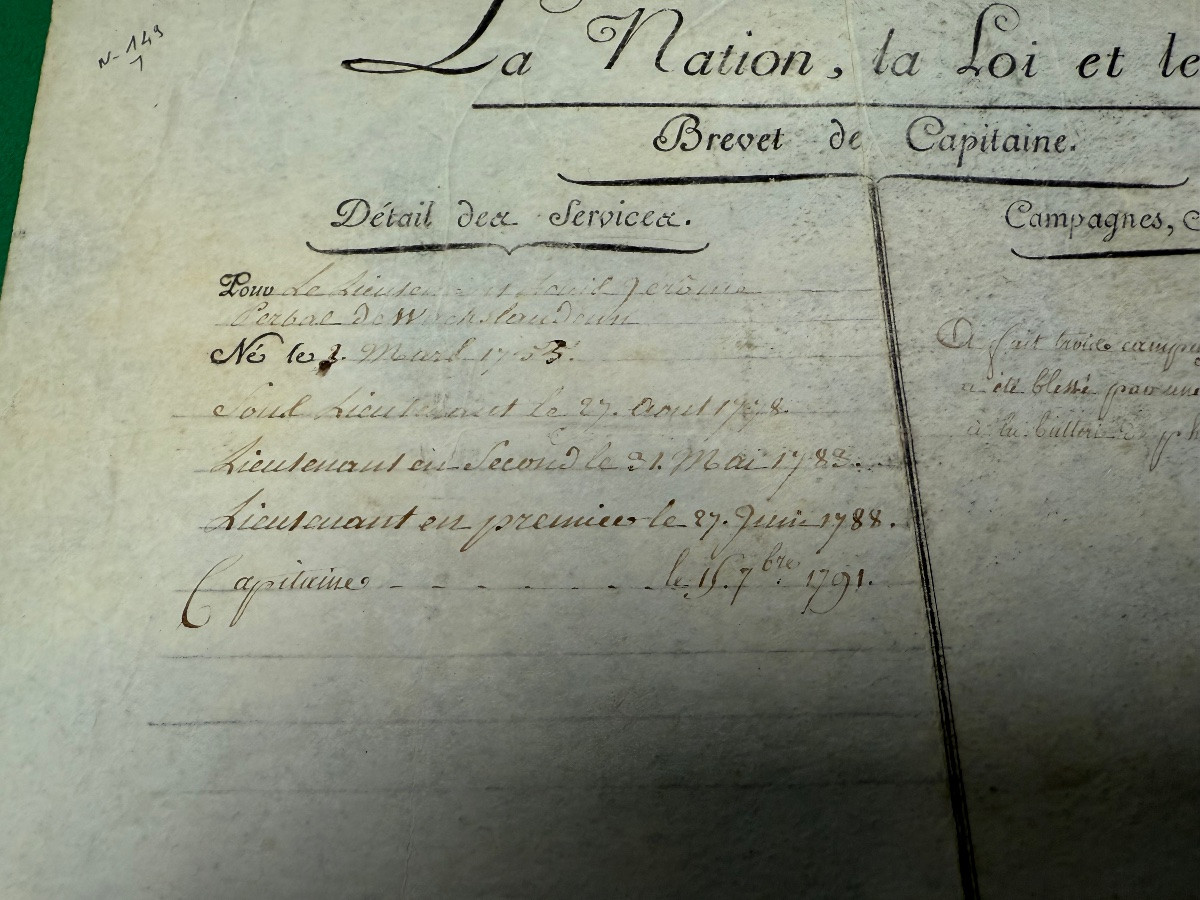 N- 149
1
La Nation, la Loi et le
Brevet de Capitaine.
Détail des Services.
Pour Le Lieutenant Louis Jerôme
Né le 3. Mars
Sous Lieutenant le 27. Aout 1778.
Lieutenant en Second le 31. Mai 1783.
Lieutenant en premier le 27. Juin 1788.
Capitaine - - - - - - le 15. 7bre 1791.
Campagnes,
A fait trois
a été blessé par une
a la